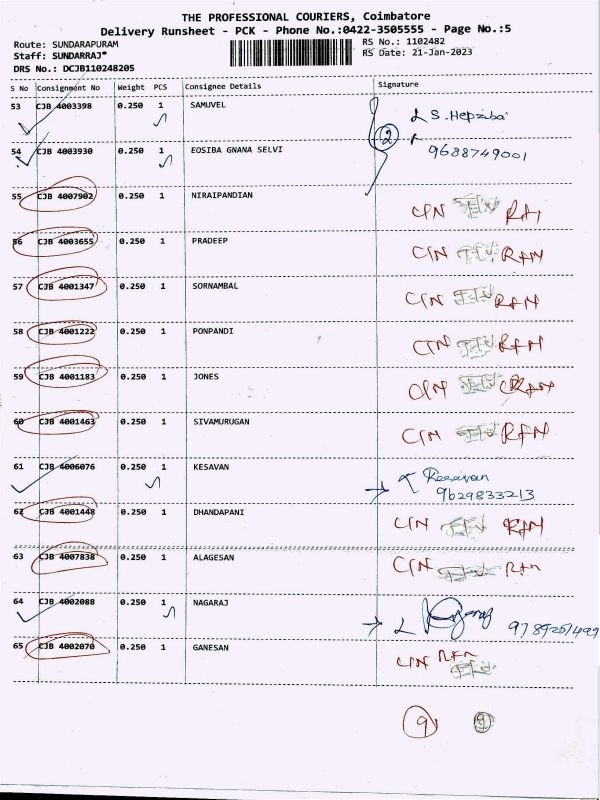 THE PROFESSIONAL COURIERS, Coimbatore
Delivery Runsheet - PCK - Phone No.:0422-3505555 - Page No.:5
Route: SUNDARAPURAM
RS No.: 1102482
Staff: SUNDARRAJ*
RS Date: 21-Jan-2023
DRS No.: DCJB110248205
S No Consignment No Weight PCS Consignee Details Signature
53 CJB 4003398 0.250 1 SAMUVEL S. Hepziba
2
54 CJB 4003930 0.250 1 EOSIBA GNANA SELVI 9688749001
55 CJB 4007902 0.250 1 NIRAIPANDIAN
56 CJB 4003655 0.250 1 PRADEEP
57 CJB 4001347 0.250 1 SORNAMBAL
58 CJB 4001222 0.250 1 PONPANDI
59 CJB 4001183 0.250 1 JONES
60 CJB 4001463 0.250 1 SIVAMURUGAN
61 CJB 4006076 0.250 1 KESAVAN Kesavan
9629833213
62 CJB 4001448 0.250 1 DHANDAPANI
63 CJB 4007838 0.250 1 ALAGESAN
64 CJB 4002088 0.250 1 NAGARAJ
65 CJB 4002070 0.250 1 GANESAN
9 9